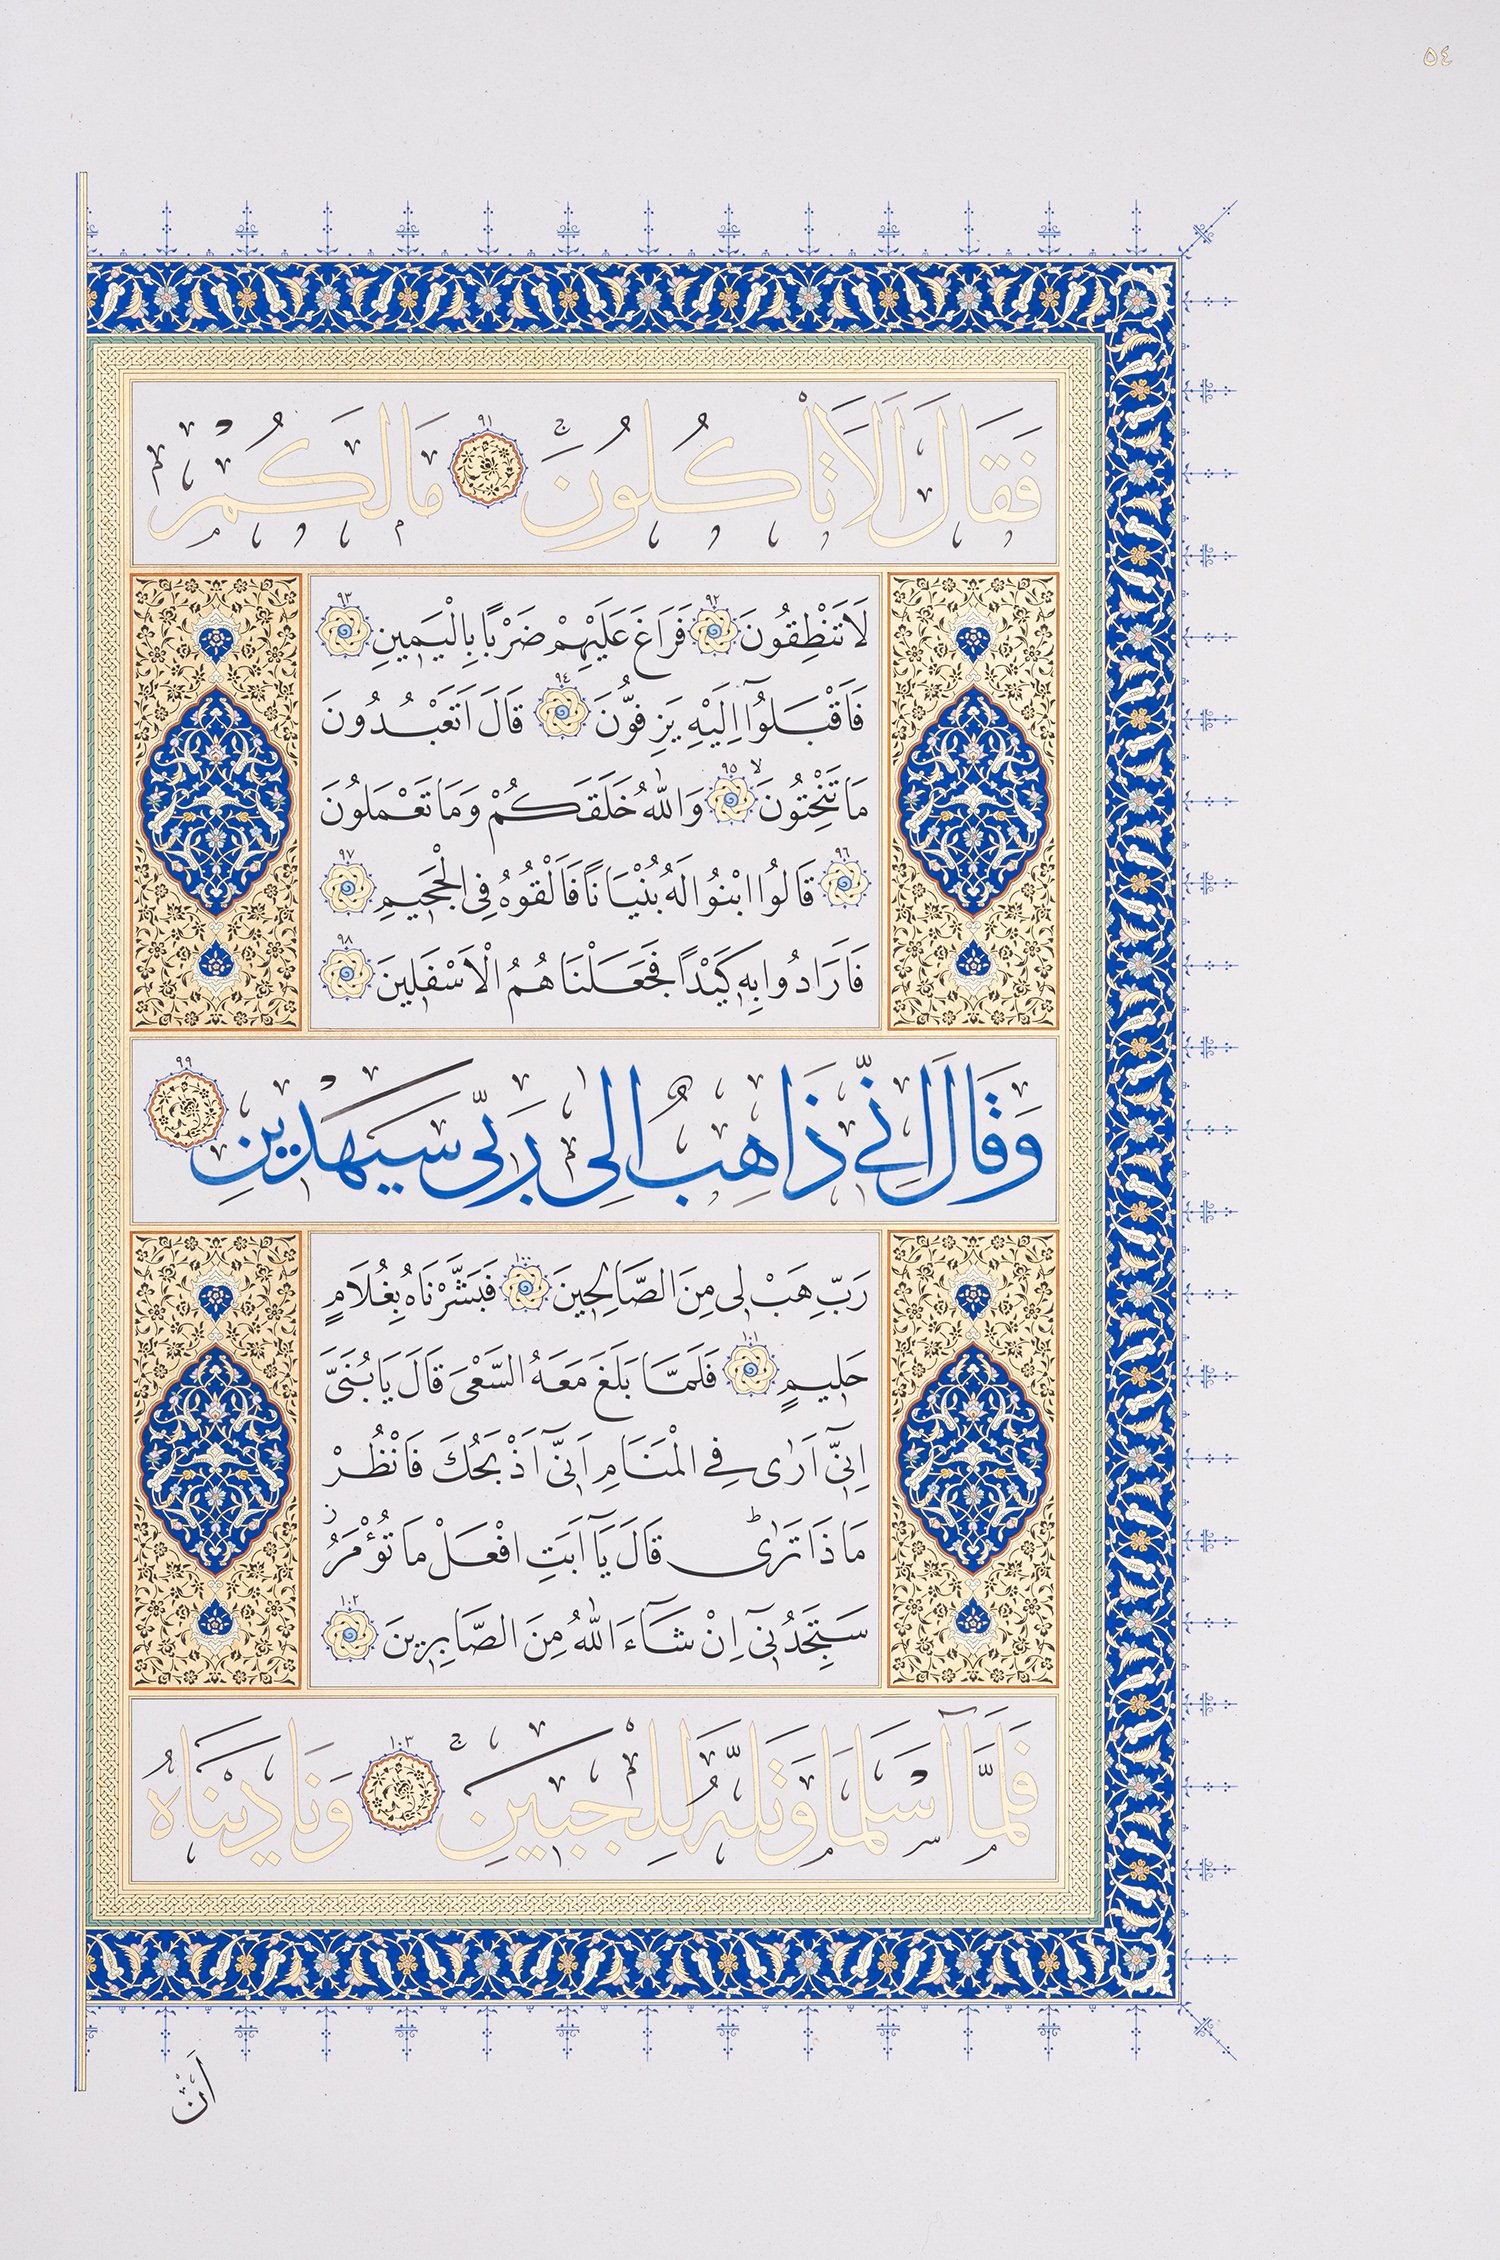 ٥٤
فَقَالَ اَلَا تَأْكُلُونَۚ ٩١ مَالَكُمْ
لَا تَنْطِقُونَ ٩٢ فَرَاغَ عَلَيْهِمْ ضَرْبًا بِالْيَمٖينِ ٩٣
فَاَقْبَلُٓوا اِلَيْهِ يَزِفُّونَ ٩٤ قَالَ اَتَعْبُدُونَ
مَا تَنْحِتُونَۙ ٩٥ وَاللّٰهُ خَلَقَكُمْ وَمَا تَعْمَلُونَ
٩٦ قَالُوا ابْنُوا لَهُ بُنْيَانًا فَاَلْقُوهُ فِى الْجَحٖيمِ ٩٧
فَاَرَادُوا بِهٖ كَيْدًا فَجَعَلْنَاهُمُ الْاَسْفَلٖينَ ٩٨
وَقَالَ اِنّٖى ذَاهِبٌ اِلٰى رَبّٖى سَيَهْدٖينِ ٩٩
رَبِّ هَبْ لٖى مِنَ الصَّالِحٖينَ ١٠٠ فَبَشَّرْنَاهُ بِغُلَامٍ
حَلٖيمٍ ١٠١ فَلَمَّا بَلَغَ مَعَهُ السَّعْىَ قَالَ يَا بُنَىَّ
اِنّٖٓى اَرٰى فِى الْمَنَامِ اَنّٖٓى اَذْبَحُكَ فَانْظُرْ
مَاذَا تَرٰىؕ قَالَ يَٓا اَبَتِ افْعَلْ مَا تُؤْمَرُؗ
سَتَجِدُنٖٓى اِنْ شَٓاءَ اللّٰهُ مِنَ الصَّابِرٖينَ ١٠٢
فَلَمَّٓا اَسْلَمَا وَتَلَّهُ لِلْجَبٖينِۚ ١٠٣ وَنَادَيْنَاهُ
اَنْ